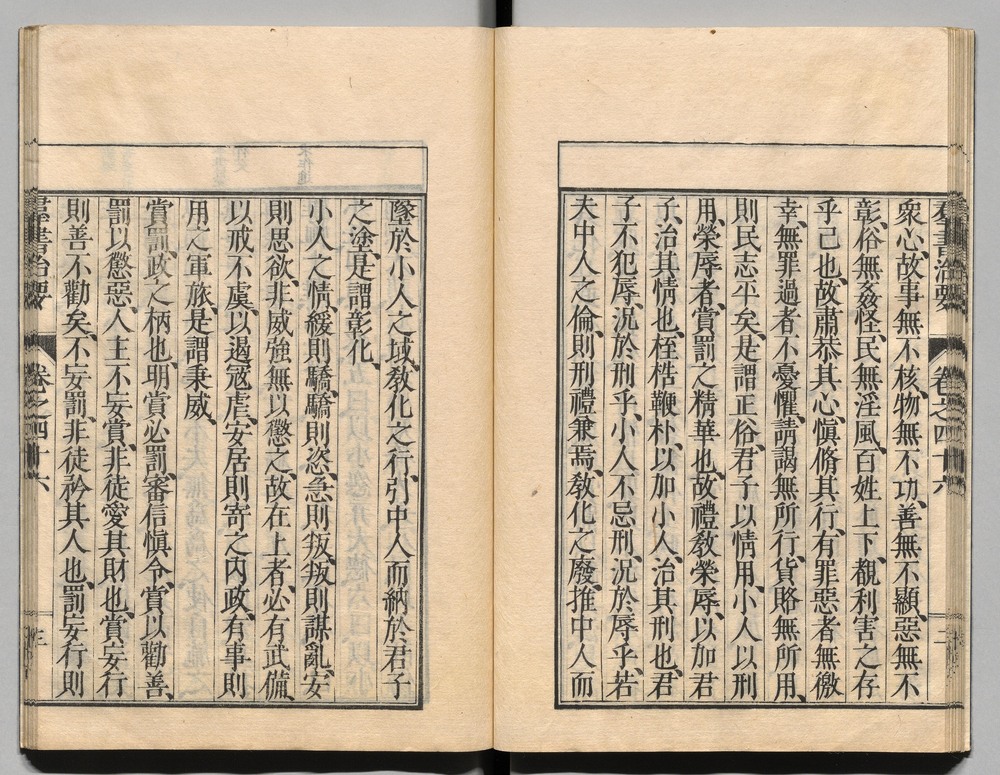 羣書治要 卷之四十六 二
衆心、故事無不核、物無不功、善無不顯、惡無不
彰、俗無姦怪、民無淫風、百姓上下、覩利害之存
乎己也、故肅恭其心、愼脩其行、有罪惡者無徼
幸、無罪過者不憂懼、請謁無所行、貨賂無所用、
則民志平矣、是謂正俗、君子以情用、小人以刑
用、榮辱者、賞罰之精華也、故禮敎榮辱、以加君
子、治其情也、桎梏鞭朴、以加小人、治其刑也、君
子不犯辱、況於刑乎、小人不忌刑、況於辱乎、若
夫中人之倫、則刑禮兼焉、敎化之廢、推中人而
墜於小人之域、敎化之行、引中人而納於君子
之塗、是謂彰化、
小人之情、緩則驕、驕則恣、急則叛、叛則謀亂、安
則思欲、非威強無以懲之、故在上者、必有武備、
以戒不虞、以遏寇虐、安居則寄之內政、有事則
用之軍旅、是謂秉威、
賞罰、政之柄也、明賞必罰、審信愼令、賞以勸善、
罰以懲惡、人主不妄賞、非徒愛其財也、賞妄行
則善不勸矣、不妄罰、非徒矜其人也、罰妄行則
羣書治要 卷之四十六 三